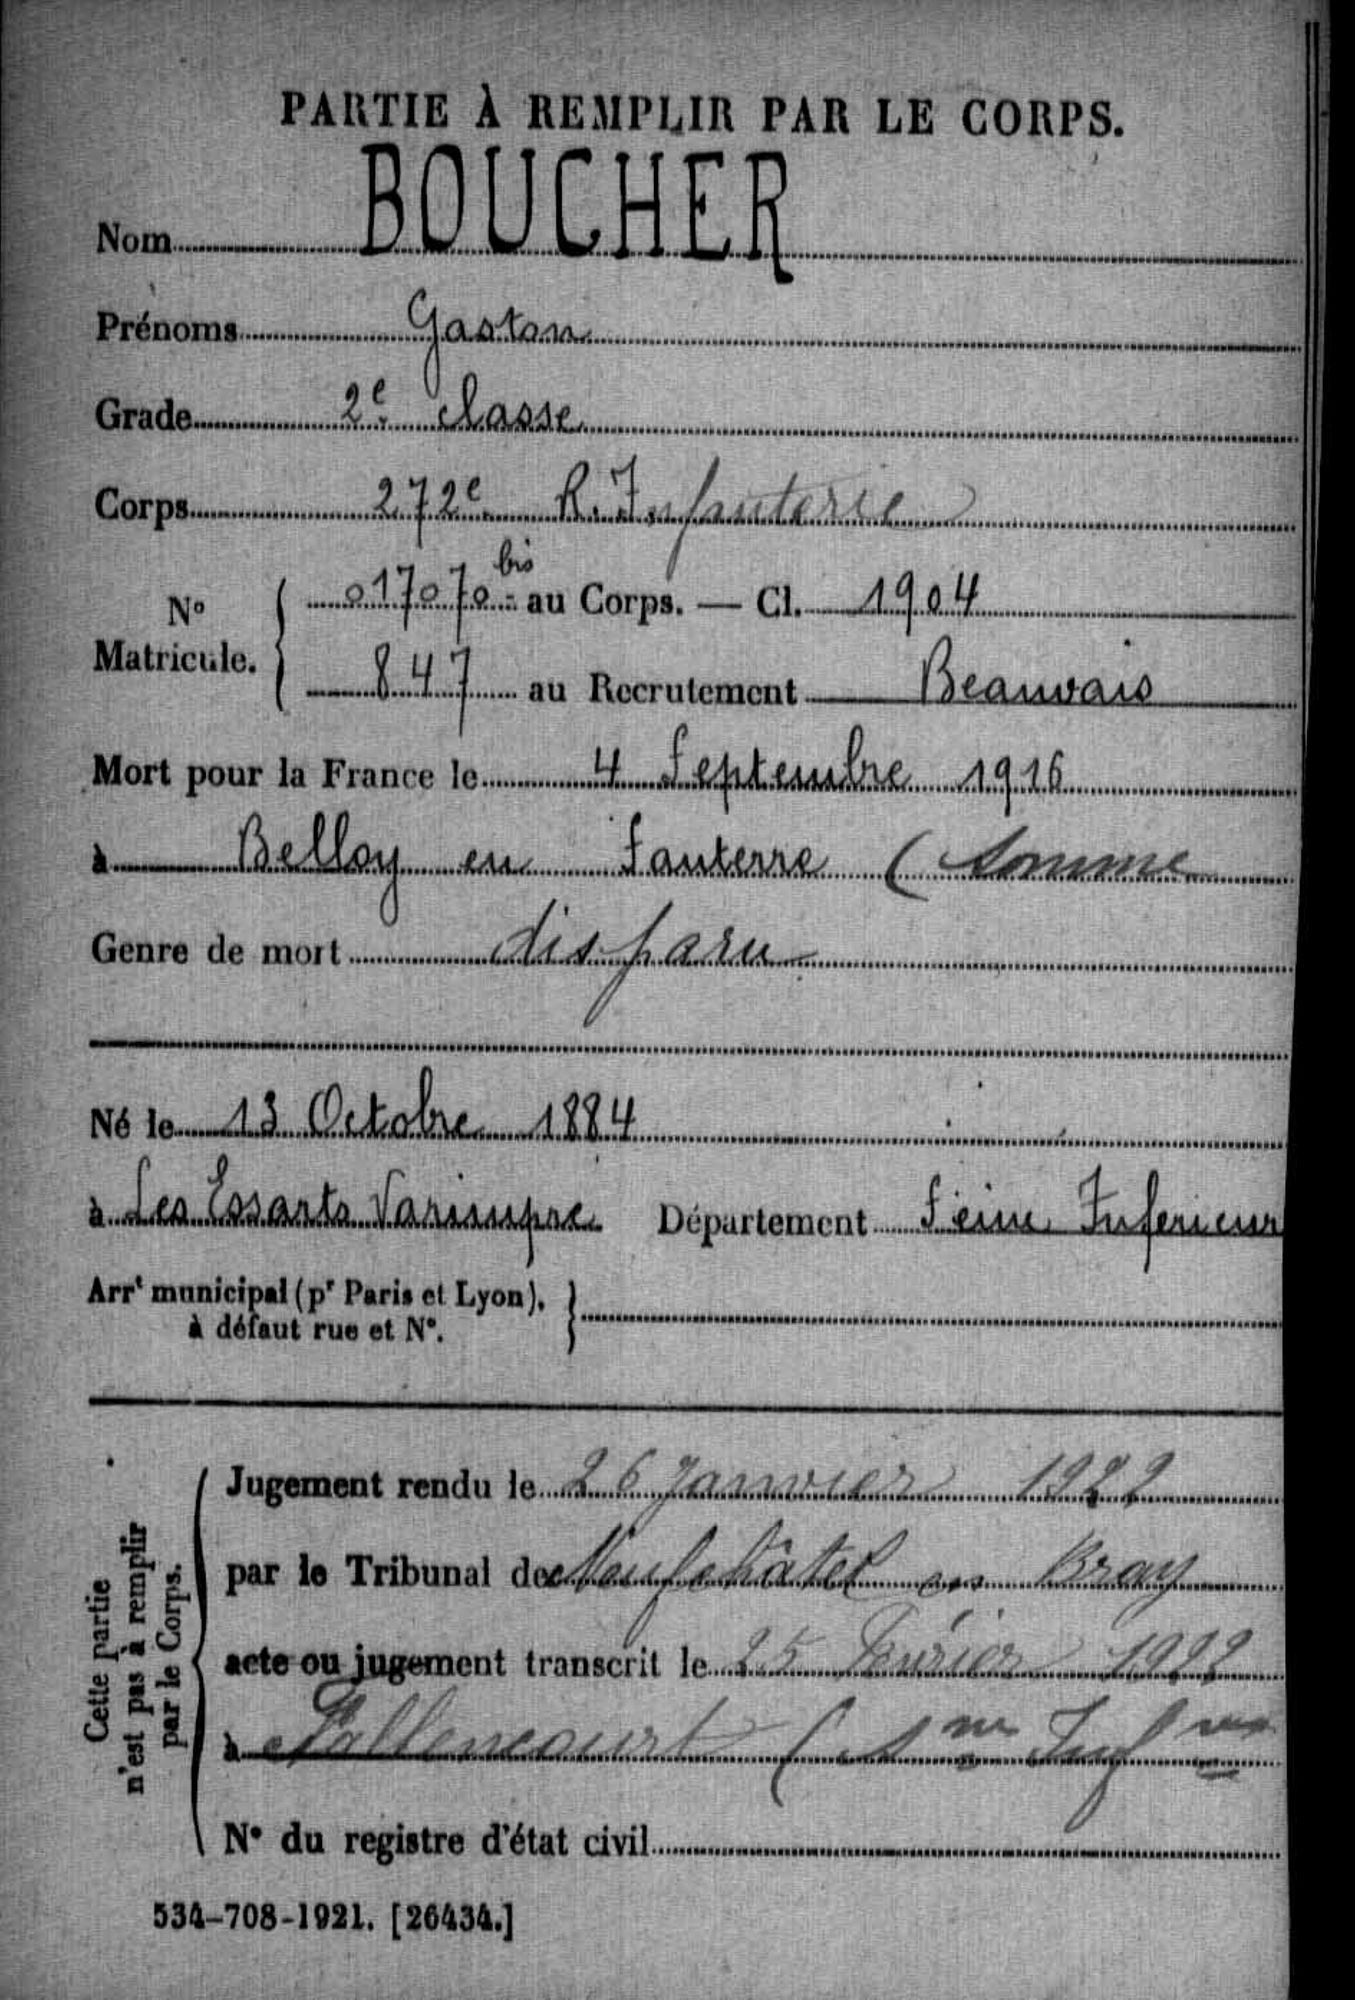 PARTIE À REMPLIR PAR LE CORPS.
Nom BOUCHER
Prénoms Gaston
Grade 2e classe
Corps 272e R. Infanterie
No Matricule. 017070 bis au Corps. — Cl. 1904
847 au Recrutement Beauvais
Mort pour la France le 4 Septembre 1916
à Belloy en Santerre (Somme
Genre de mort disparu
Né le 13 Octobre 1884
à Les Essarts Varimpre Département Seine Inferieur
Arrt municipal (pr Paris et Lyon),
à défaut rue et N°.
Cette partie
n'est pas à remplir
par le Corps.
Jugement rendu le 26 Janvier 1922
par le Tribunal de Neufchâtel en Bray
acte ou jugement transcrit le 25 Février 1922
à Fallencourt (Sne Infre
N° du registre d'état civil
534-708-1921. [26434.]